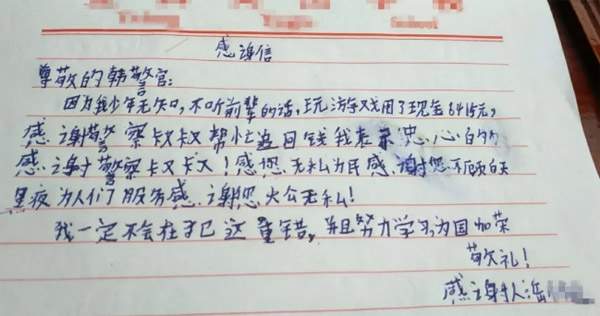 School
感谢信
尊敬的韩警官:
因为我少年无知,不听前辈的话,玩游戏用了现金6415元,
感谢警察叔叔帮忙追回钱我表示忠心的
感谢警察叔叔!感您无私为民感谢您不顾白天
黑夜为人们服务感谢您大公无私!
我一定不会在犯这重错,并且努力学习,为国加荣
敬礼!
感谢人:岳